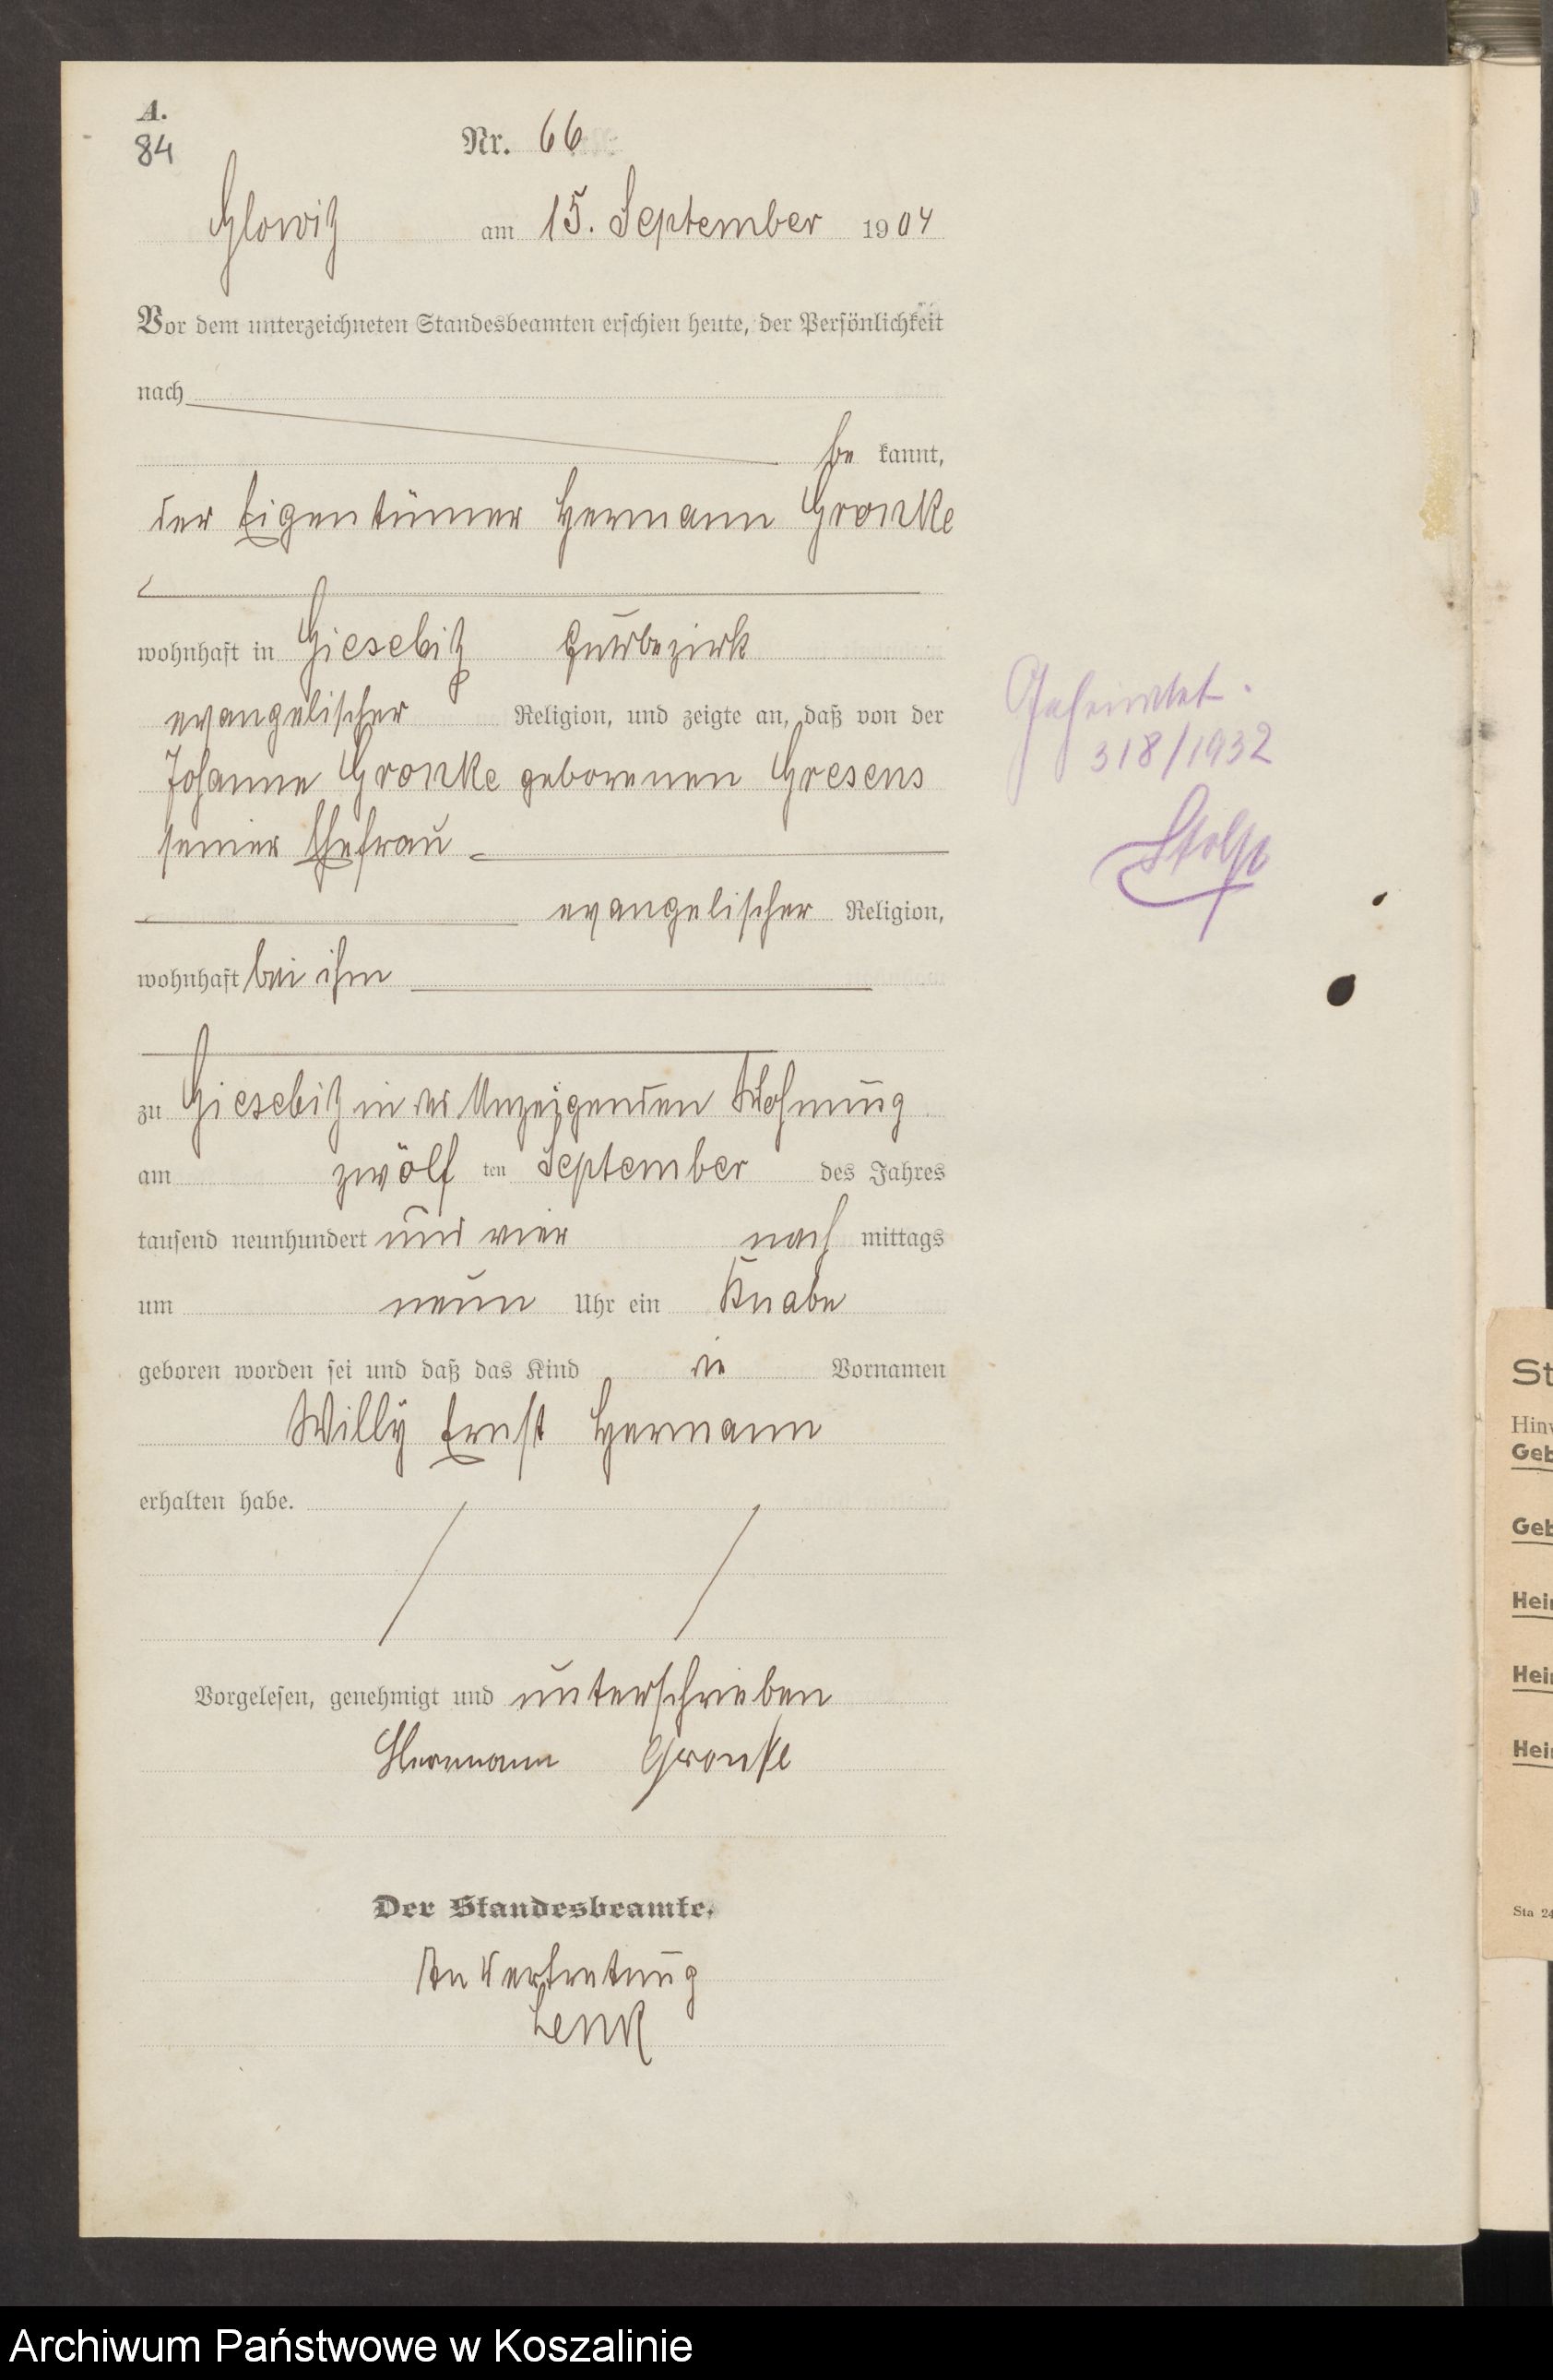 A.
84
Nr. 66
Glowitz am 15. September 1904
Vor dem unterzeichneten Standesbeamten erschien heute, der Persönlichkeit
nach
be kannt,
der Eigentümer Hermann Gronke
wohnhaft in Giesebitz Gutsbezirk
evangelischer Religion, und zeigte an, daß von der
Johanne Gronke geborenen Gresens
seiner Ehefrau
evangelischer Religion,
wohnhaft bei ihm
zu Giesebitz in des Anzeigenden Wohnung
am zwölf ten September des Jahres
tausend neunhundert und vier nach mittags
um neun Uhr ein Knabe
geboren worden sei und daß das Kind die Vornamen
Willy Ernst Hermann
erhalten habe.
Vorgelesen, genehmigt und unterschrieben
Hermann Gronke
Der Standesbeamte.
In Vertretung
Lenk
Geheiratet.
318/1932
Stolp
St
Hinw
Geb
Geb
Hei
Hei
Hei
Sta 24
Archiwum Państwowe w Koszalinie